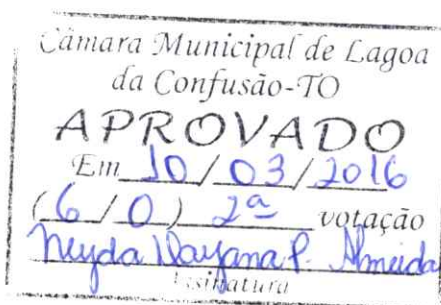 Câmara Municipal de Lagoa
da Confusão-TO
APROVADO
Em 10/03/2016
(6/0) 2ª votação
Neyda Dayana P. Almeida
Assinatura